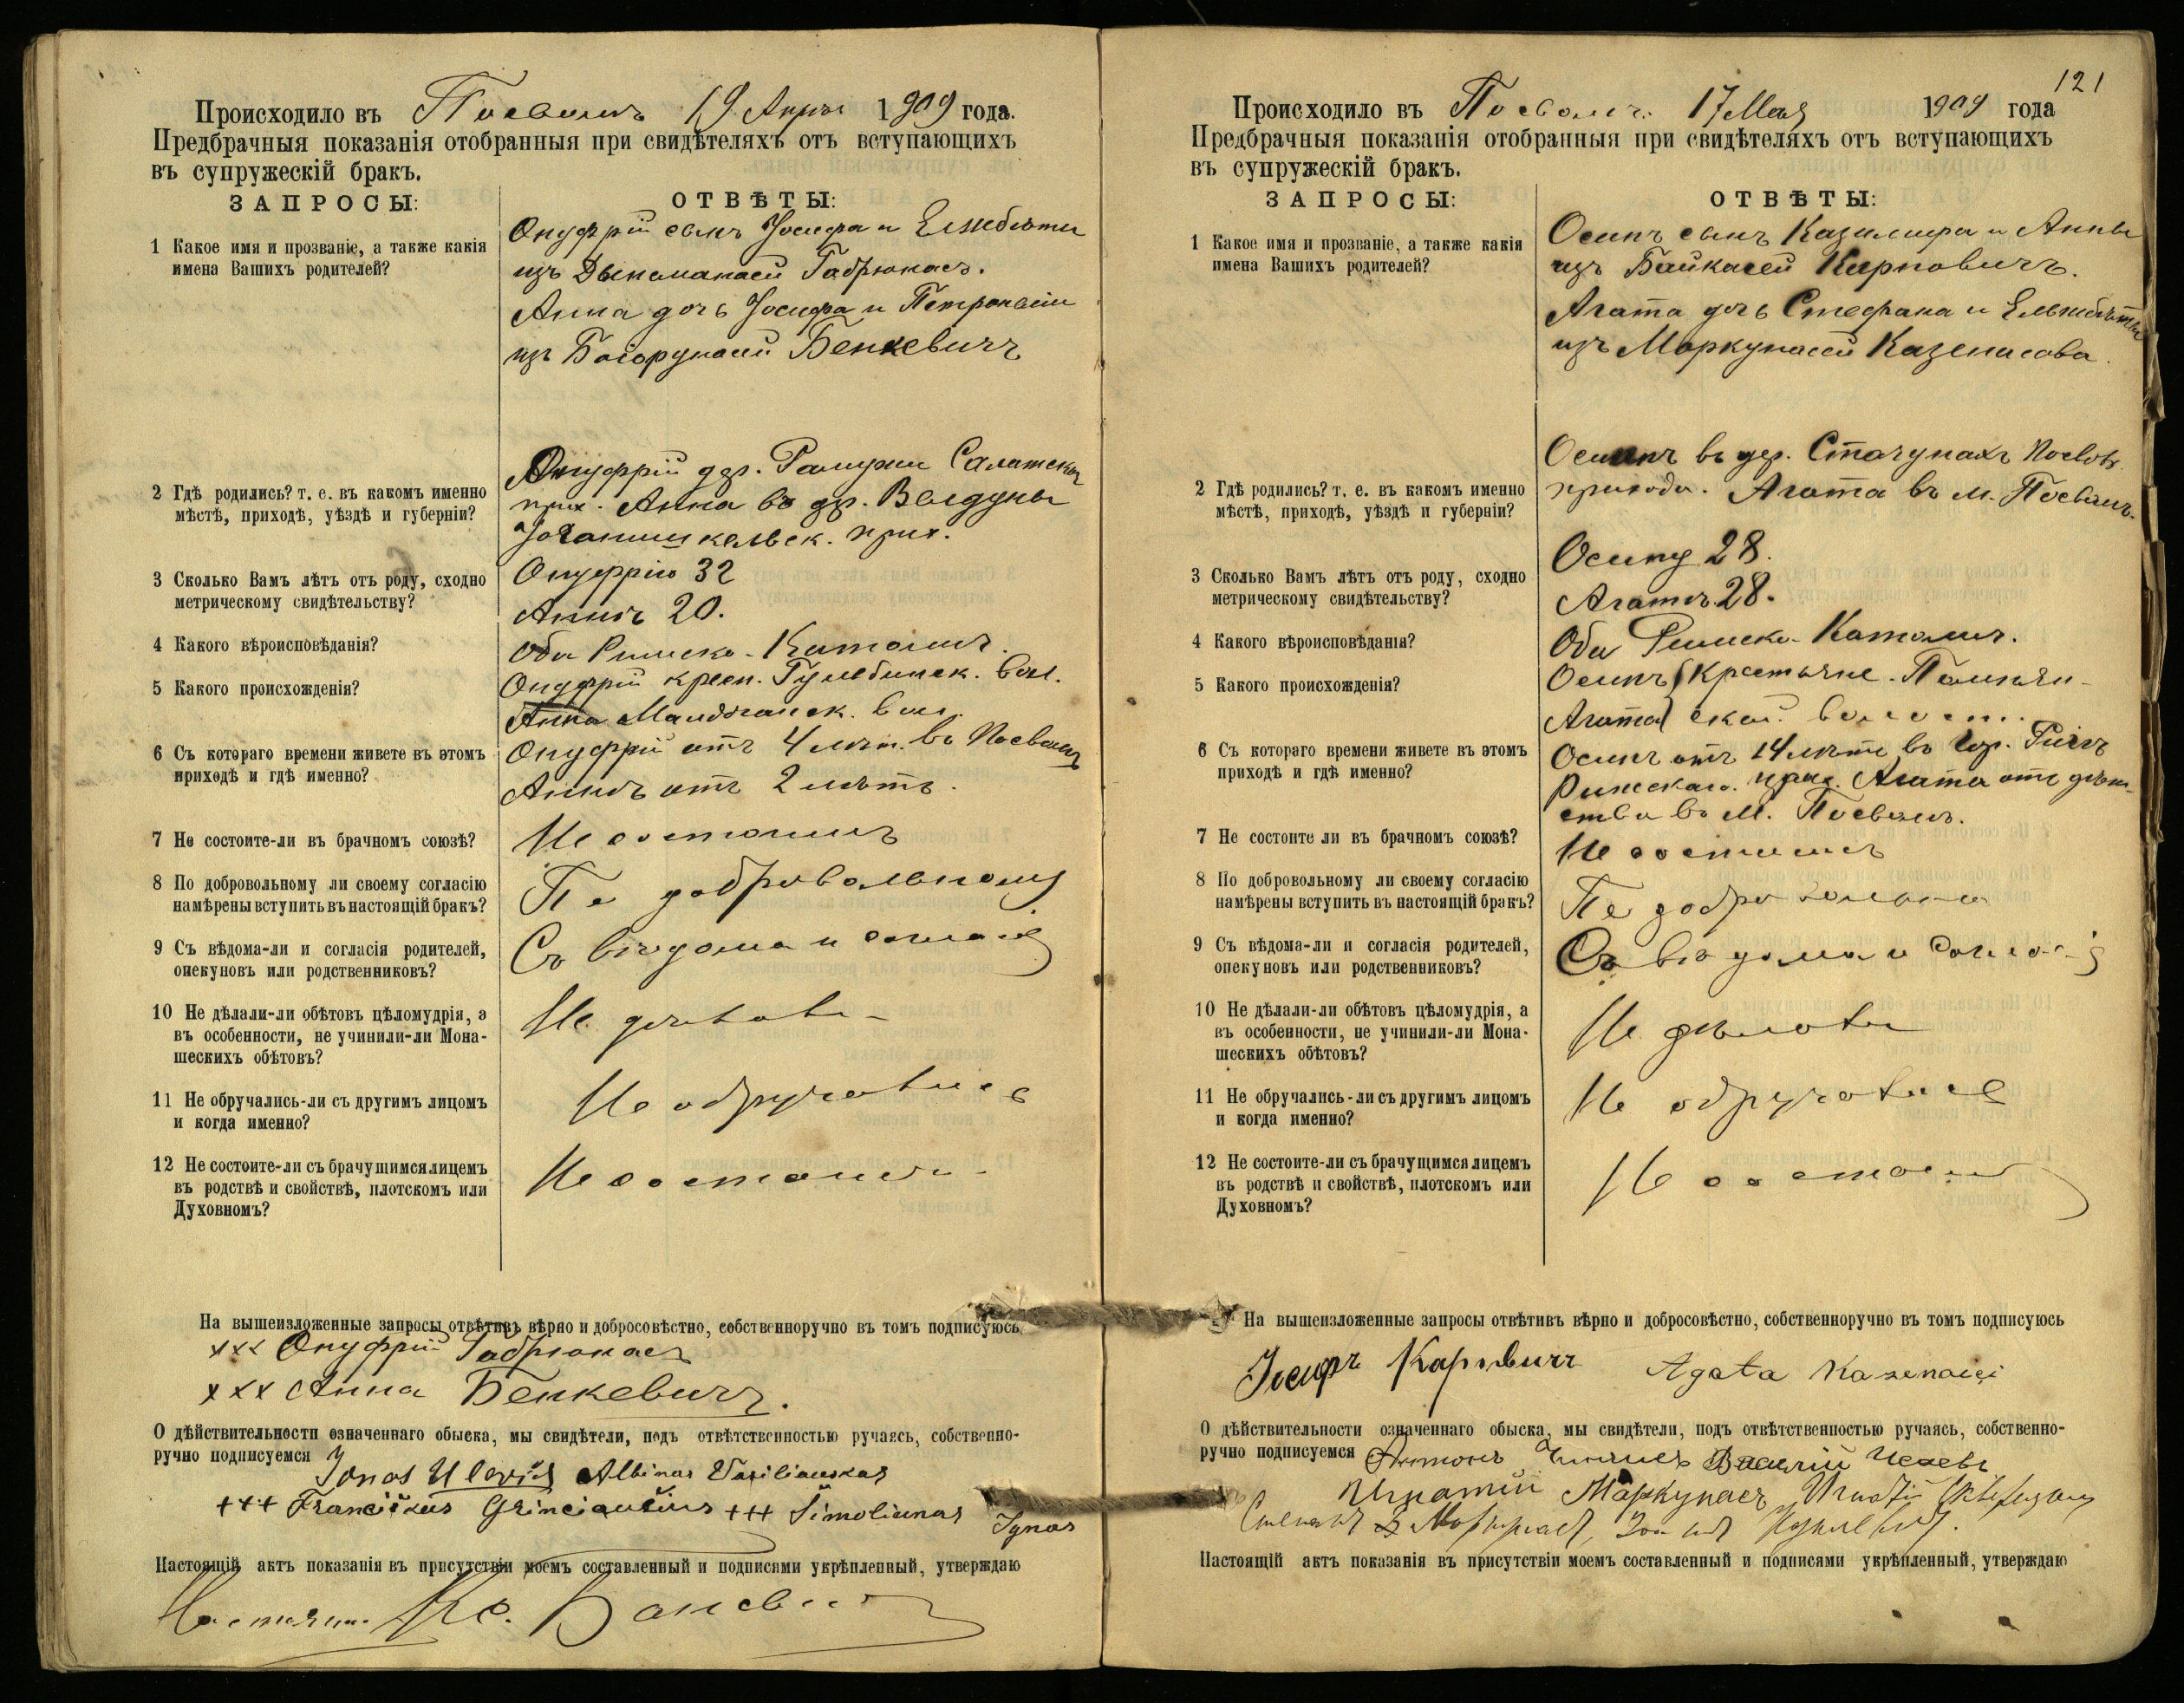 Происходило въ Посволѣ 19 Апрѣл 1909 года.
Предбрачныя показанія отобранныя при свидѣтеляхъ отъ вступающихъ
въ супружескій бракъ.
ЗАПРОСЫ:
ОТВѢТЫ:
1 Какое имя и прозваніе, а также какія
имена Вашихъ родителей?
Онуфрій сынъ Іосифа и Елжбѣты
изъ Габрюнасъ.
Анна дочь Іосифа и Петронеліи
изъ Бенкевичъ
2 Гдѣ родились? т. е. въ какомъ именно
мѣстѣ, приходѣ, уѣздѣ и губерніи?
Онуфрій дер. Салатск
прих. Анна въ др. Вялдуны
Іоганишкельск. прих.
3 Сколько Вамъ лѣтъ отъ роду, сходно
метрическому свидѣтельству?
Онуфрію 32
Аннѣ 20.
4 Какого вѣроисповѣданія?
Оба Римско-Католич.
5 Какого происхожденія?
Онуфрій крест. Гулебинск. вол.
Анна вол.
6 Съ котораго времени живете въ этомъ
приходѣ и гдѣ именно?
Онуфрій отъ 4 лѣт. въ Посволѣ
Аннѣ отъ 2 лѣтъ.
7 Не состоите-ли въ брачномъ союзѣ?
Не состоимъ
8 По добровольному ли своему согласію
намѣрены вступить въ настоящій бракъ?
По добровольному
9 Съ вѣдома-ли и согласія родителей,
опекуновъ или родственниковъ?
Съ вѣдома и согласія
10 Не дѣлали-ли обѣтовъ цѣломудрія, а
въ особенности, не учинили-ли Мона-
шескихъ обѣтовъ?
Не дѣлали
11 Не обручались-ли съ другимъ лицомъ
и когда именно?
Не обручались
12 Не состоите-ли съ брачущимся лицемъ
въ родствѣ и свойствѣ, плотскомъ или
Духовномъ?
Не состоимъ
На вышеизложенные запросы отвѣтивъ вѣрно и добросовѣстно, собственноручно въ томъ подписуюсь
xxx Онуфрій Габрюнасъ
xxx Анна Бенкевичъ.
О дѣйствительности означеннаго обыска, мы свидѣтели, подъ отвѣтственностью ручаясь, собственно-
ручно подписуемся
Jonas Ulevič Albinas Vasiliauskas
+++ Franciškus Grinciaučius +++ Šimoliunas Ignas
Настоящій актъ показанія въ присутствіи моемъ составленный и подписями укрѣпленный, утверждаю
Кс.
121
Происходило въ Посволѣ. 17 Мая 1909 года
Предбрачныя показанія отобранныя при свидѣтеляхъ отъ вступающихъ
въ супружескій бракъ.
ЗАПРОСЫ:
ОТВѢТЫ:
1 Какое имя и прозваніе, а также какія
имена Вашихъ родителей?
Осипъ сынъ Казимира и Анны
изъ Байкасей Карповичъ.
Агата дочь Стефана и Ельжбѣты
изъ Моркунасей Казенасова.
2 Гдѣ родились? т. е. въ какомъ именно
мѣстѣ, приходѣ, уѣздѣ и губерніи?
Осипъ въ дер. Стачунахъ Посвол.
прихода. Агата въ м. Посволѣ.
3 Сколько Вамъ лѣтъ отъ роду, сходно
метрическому свидѣтельству?
Осипу 28.
Агатѣ 28.
4 Какого вѣроисповѣданія?
Оба Римско-Католич.
5 Какого происхожденія?
Осипъ Крестьяне
Агата ской волости.
6 Съ котораго времени живете въ этомъ
приходѣ и гдѣ именно?
Осипъ отъ 14 лѣтъ въ гор. Ригѣ
Рижскаго. прих. Агата отъ дѣт-
ства въ м. Посволѣ.
7 Не состоите ли въ брачномъ союзѣ?
Не состоимъ
8 По добровольному ли своему согласію
намѣрены вступить въ настоящій бракъ?
По добровольному
9 Съ вѣдома-ли и согласія родителей,
опекуновъ или родственниковъ?
Съ вѣдома и согласія
10 Не дѣлали-ли обѣтовъ цѣломудрія, а
въ особенности, не учинили-ли Мона-
шескихъ обѣтовъ?
Не дѣлали
11 Не обручались-ли съ другимъ лицомъ
и когда именно?
Не обручались
12 Не состоите-ли съ брачущимся лицемъ
въ родствѣ и свойствѣ, плотскомъ или
Духовномъ?
Не состоимъ
На вышеизложенные запросы отвѣтивъ вѣрно и добросовѣстно, собственноручно въ томъ подписуюсь
Іосифъ Карповичъ Agata
О дѣйствительности означеннаго обыска, мы свидѣтели, подъ отвѣтственностью ручаясь, собственно-
ручно подписуемся Антонъ Василій
Игнатій Маркунасъ Игнатій
Настоящій актъ показанія въ присутствіи моемъ составленный и подписями укрѣпленный, утверждаю